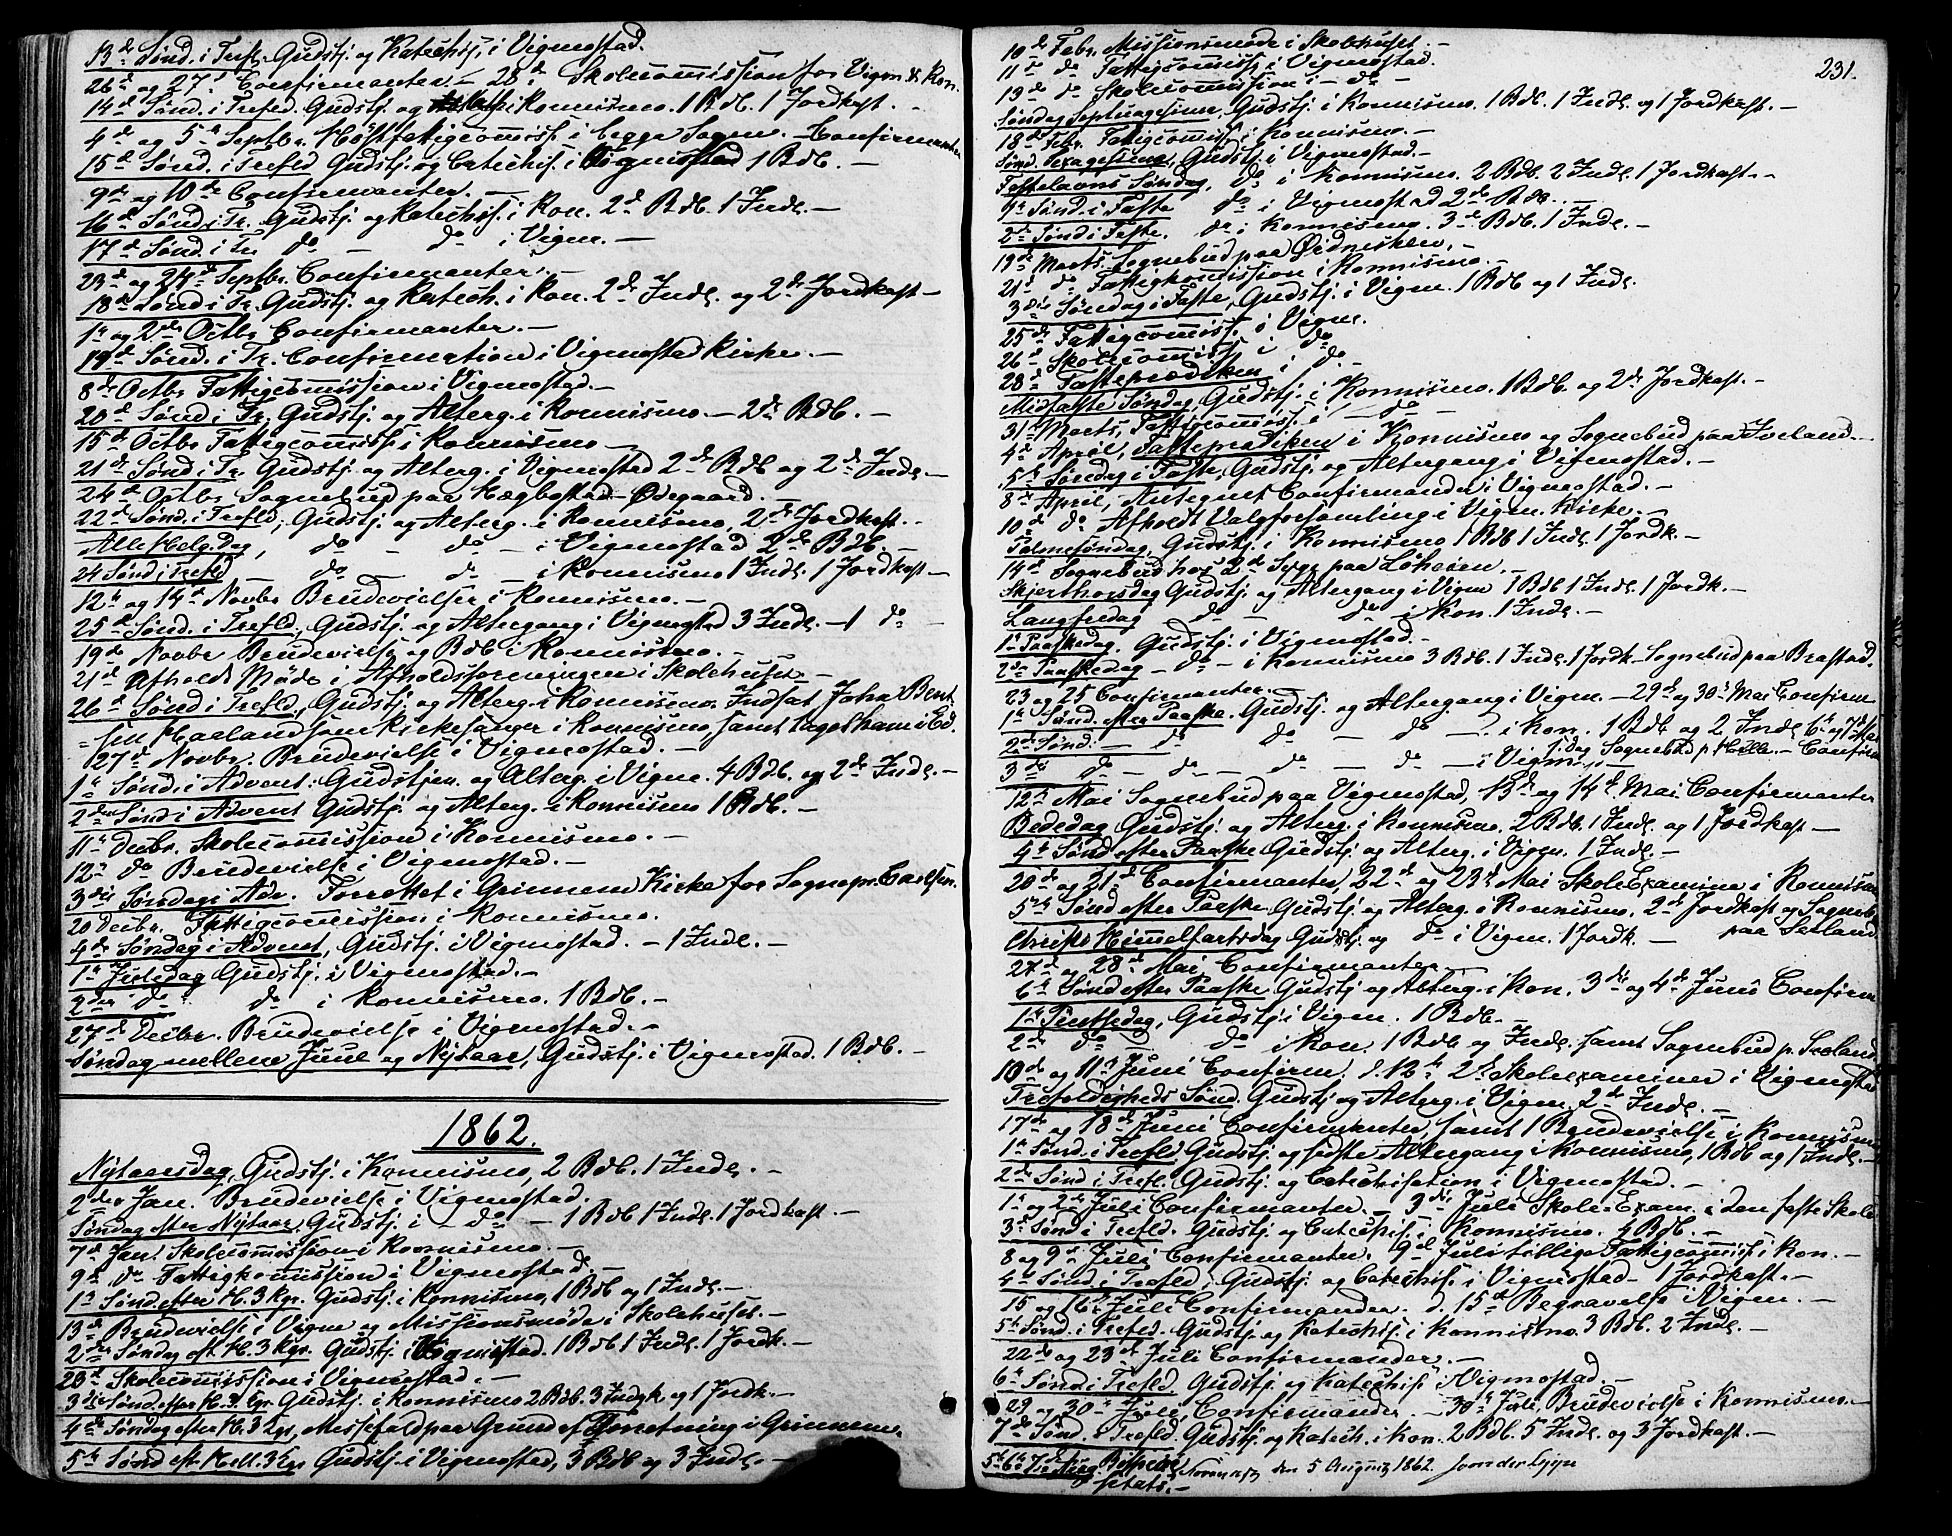 13de Sønd. i Trefl. Gudstj. og Katechis. i Vigmostad.
26de og 27de Confirmanter. — 28de Skolecomission for Vigm. & Kon.
14de Sønd. i Trefld. Gudstj. og i Konnismo. 1 Bdb. 1 Jordkast. —
4de og 5te Septbr. Höstfattigcomiss. i begge Sogne. — Confirmanter
15de Sønd. i Trefld Gudstj. og Catechis. i Vigmostad 1 Bdb. —
9de og 10de Confirmanter. —
16de Sønd. i Tr. Gudstj. og Katechis. i Kon. 2de Bdb. 1 Indl. —
17de Sønd. i Tr. do — do i Vigm. —
23de og 24de Septbr. Confirmanter. —
18de Sønd. i Tr. Gudstj. og Katech. i Kon. 2de Indl. og 2de Jordkast —
1te og 2den Octbr Confirmanter. —
19de Sønd. i Tr. Confirmation i Vigmostad Kirke. —
8de Octbr Fattigcomission i Vigmostad. —
20de Sønd i Tr. Gudstj. og Alterg. i Konnismo — 2de Bdb. —
15de Octbr Fattigcomiss. i Konnismo —
21de Sønd i Tr. Gudstj. og Alterg. i Vigmostad 2de Bdb og 2de Indl. —
24de Octbr Sognebud paa Hægbostad-Ødegaard. —
22de Sønd. i Trefld, Gudstj. og Alterg. i Konnismo, 2de Jordkast. —
Alle Helg. dag, do — do — i Vigmostad 2de Bdb. —
24 Sønd i Trefld do — do i Konnismo 1 Indl. 1 Jordkast —
12te og 14de Novbr Brudevielser i Konnismo. —
25de Sønd. i Trefld, Gudstj. og Altergang i Vigmostad 3 Indl. — 1 do —
19de Novbr Brudevielse og Bdb i Konnismo. —
21de Afholdt Möde i Afholdsforeningen i Skolehuset —
26de Sønd i Trefld, Gudstj. og Alterg. i Konnismo. Indsat John Bent
= sen Haaland som Kirkesanger i Konnismo, samt taget ham i Ed.
27de Novbr. Brudevielse i Vigmostad. —
1te Sønd. i Advent. Gudstjen. og Alterg. i Vigm. 4 Bdb. og 2de Indl. —
2den Sønd i Advent Gudstj. og Alterg. i Konnismo 1 Bdb. —
11te Decbr. Skolecomission i Konnismo. —
12te do Brudevielse i Vigmostad. —
3die Søndag i Adv. Forrettet i Grinnem Kirke for Sognepr. Carlsen.
20 Decbr. Fattigcomission i Konnismo.
4de Søndag i Advent, Gudstj. i Vigmostad. — 1 Indl. —
1te Juledag Gudstj. i Vigmostad. —
2den do do i Konnismo. 1 Bdb. —
27de Decbr. Brudevielse i Vigmostad. —
Søndag mellem Juul og Nytaar, Gudstj. i Vigmostad. 1 Bdb. —
1862.
Nytaarsdag, Gudstj. i Konnismo, 2 Bdb. 1 Indl. —
2den Jan. Brudevielse i Vigmostad.
Søndag efter Nytaar, Gudstj. i — do — 1 Bdb 1 Indl. 1 Jordkast. —
7de Jan. Skolecomission i Konnismo. —
9de do Fattigkomission i Vigmostad. —
1te Sønd. efter H. 3 Kgr. Gudstj. i Konnismo, 1 Bdb og 1 Indl. —
13de Brudevielse i Vigm og Missionsmøde i Skolehuset. —
2den Søndag eft H. 3 Kgr. Gudstj. i Vigmostad. 1 Bdb 1 Indl. 1 Jordk. —
23de Skolecomission i Vigmostad. —
3die Sønd efter H. 3. Kgr Gudstj. i Konnismo 2 Bdb. 3 Indgk og 1 Jordk. —
4de Søndag efter H. 3 Kgr, Messefald paa Grund af Forretning i Grinnem.
5te Sønd eft Hell. 3 Kgr Gudstj. i Vigmostad, 3 Bdb og 3 Indl. —
231.
10de Febr. Missionsmøde i Skolehuset. —
11te do Fattigcomiss. i Vigmostad.
19de do Skolecomission i — do —
Søndag Septuagesima, Gudstj. i Konnismo. 1 Bdb. 1 Indl. og 1 Jordkast. —
18de Febr. Fattigcomiss. i Konnismo. —
Sønd. Sexagesima, Gudstj. i Vigmostad. —
Fastelavns Søndag, do i Konnismo. 2 Bdb. 2 Indl. 1 Jordkast. —
1te Sønd. i Faste do i Vigmostad 2de Bdb. —
2den Sønd i Faste. do i Konnismo. 3de Bdb. 1 Indl. —
19de Marts. Sognebud paa Øidneskleiv. —
21de do Fattigkomission i Konnismo. —
3die Søndag i Faste, Gudstj. i Vigm. 1 Bdb og 1 Indl.
25de Fattigcomiss. i Vigm.
26de Skolecomiss i do
28de Fasteprædiken i do —
Midfaste Søndag, Gudstj. i Konnismo. 1 Bdb. og 2de Jordkast. —
31te Marts, Fattigcomiss. i — do —
4de April, Fasteprædiken i Konnismo og Sognebud paa Iveland. —
5te Søndag i Faste, Gudstj. og Altergang i Vigmostad. —
8de April, Antegnet Confirmander i Vigmostad. —
10de do Afholdt Valgforsamling i Vigm. Kirke. —
Palmesøndag, Gudstj. i Konnismo 1 Bdb 1 Indl. 1 Jordk. —
14de Sognebud hos 2de Syge paa Løheien. —
Skjærthorsdag Gudstj. og Altergang i Vigm 1 Bdb 1 Indl. 1 Jordk. —
Langfredag do — do i Kon. 1 Indl. —
1te Paaskedag. Gudstj. i Vigmostad. —
2den Paaskedag — do — i Konnismo 3 Bdb. 1 Indl. 1 Jordk — Sognebud paa Brastad.
23 og 25 Confirmanter. —
1te Sønd. efter Paaske. Gudstj. og Altergang i Vigm. — 29de og 30te Mai Confirm
2den Sønd. — do — do — do — i Kon. 1 Bdb og 2 Indl 6te og 7de Mai
3die do — do — do — do — i Vigm. — Idag Sognebud p. Helle. — Confirm
12te Mai Sognebud paa Vigmostad, 13de og 14de Mai Confirmanter
Bededag Gudstj. og Alterg. i Konnismo. 2 Bdb. 1 Indl. og 1 Jordkast —
4de Sønd efter Paaske Gudstj. og Alterg. i Vigm. 1 Indl. —
20de og 21de Confirmanter, 22de og 23de Mai SkoleExamina i Konnism
5te Sønd efter Paaske Gudstj. og Alterg. i Konnismo, 2de Jordkast og Sogneb.
paa Seeland
Christi Himmelfartsdag Gudstj. og do i Vigm. 1 Jordk. —
27de og 28de Mai Confirmanter. —
6te Sønd efter Paaske Gudstj og Alterg. i Kon. 3die og 4de Juni Confirm
1te Pintsedag, Gudstj. i Vigm. 1 Bdb. —
2den do — do i Kon. 1 Bdb og Indl. samt Sognebud p. Seeland
10de og 11te Juni Confirm. d. 12te 2de Skoleexaminer i Vigmostad
Trefoldigheds Sønd. Gudstj og Alterg. i Vigm. 2de Indl. —
17de og 18de Juni Confirmanter, samt 1 Brudevielse i Konnism
1te Sønd. i Trefld Gudstj. og sidste Altergang i Konnismo, 1 Bdb og 1 Indl. —
2den Sønd i Trefl. Gudstj. og Catechisation i Vigmostad. —
1te og 2den Juli Confirmanter. — 3die Juli Skole-Exam. i den faste Skole
3de Sønd i Trefld. Gudstj. og Catechis. i Konnismo. 4 Bdb. —
8 og 9de Juli Confirmanter. 9de Juli tillige Fattigcomiss i Kon. —
4de Sønd. i Trefld i Gudstj. og Catechis. i Vigmostad — 1 Jordkast. —
15 og 16de Juli Confirmander. d. 15de Begravelse i Vigm. —
5te Sønd. i Trefld. Gudstj. og Katechis. i Konnismo. 3 Bdb. 2 Indl. —
22de og 23de Juli Confirmander. —
6te Sønd i Trefld Gudstj. og Katechis. i Vigmostad. —
29 og 30te Juli, Confirmander. — 30te Juli, Brudevielse i Konnismo. —
7de Sønd. i Trefld. Gudstj. og Katech. i Kon. 2 Bdb. 5 Indl. og 3 Jordkast. —
5te 6te 7de Aug. Bispevi
den 5 August 1862.
sitats. —